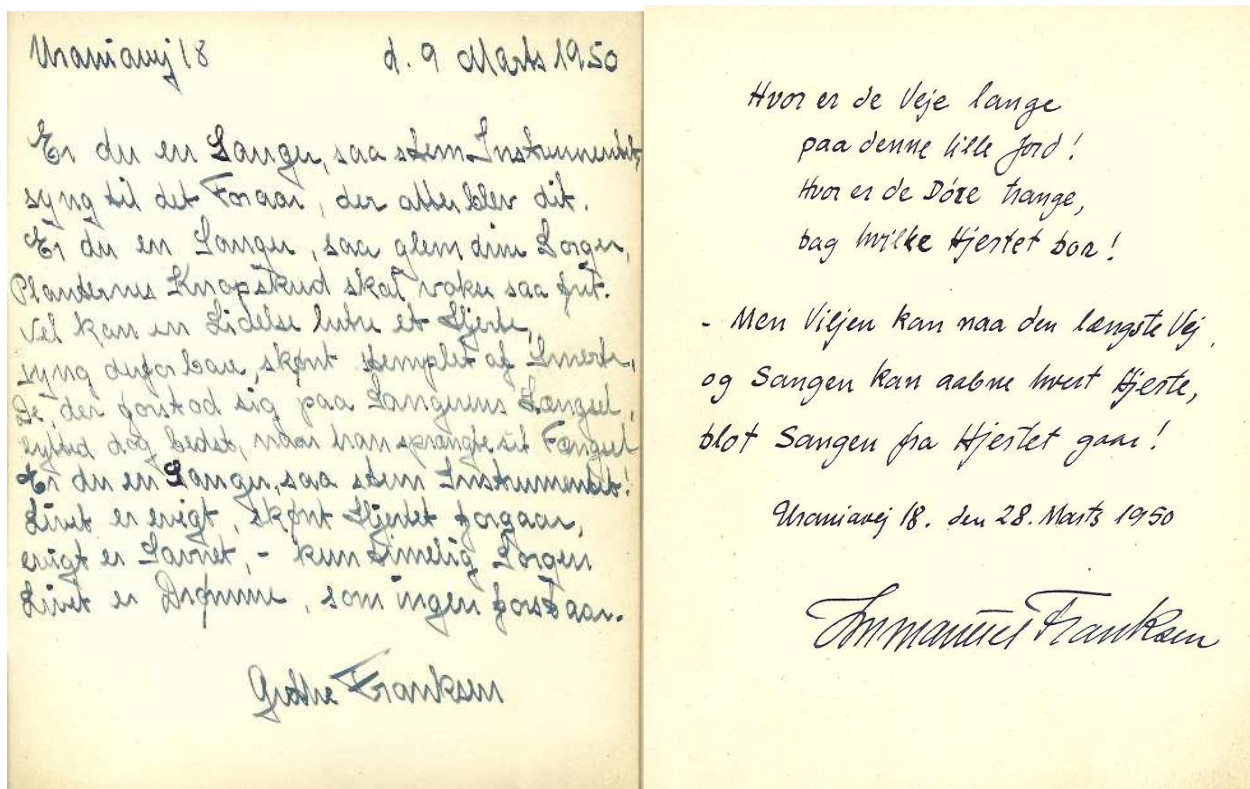 Uraniavej 18 d. 9 Marts 1950
Er du en Sanger, saa stem Instrumentet,
syng til det Foraar, der atter blev dit.
Er du en Sanger, saa glem dine Sorger,
Planternes Knopskud skal vokse saa frit.
Vel kan en Lidelse lutre et Hjerte,
syng derfor bare, skønt stemplet af Smerte,
De, der forstod sig paa Sangerens Længsel,
lytted dog bedst, naar han sprængte sit Fængsel
Er du en Sanger, saa stem Instrumentet!
Livet er evigt, skønt Hjertet forgaar,
evigt er Savnet, - kun timelig Sorgen
Livet er Drømme, som ingen forstaar.
Grethe Franksen
Hvor er de Veje lange
paa denne lille Jord!
Hvor er de Döre trange,
bag hvilke Hjertet bor!
- Men Viljen kan naa den længste Vej,
og Sangen kan aabne hvert Hjerte,
blot Sangen fra Hjertet gaar!
Uraniavej 18. den 28. Marts 1950
Immanuel Franksen